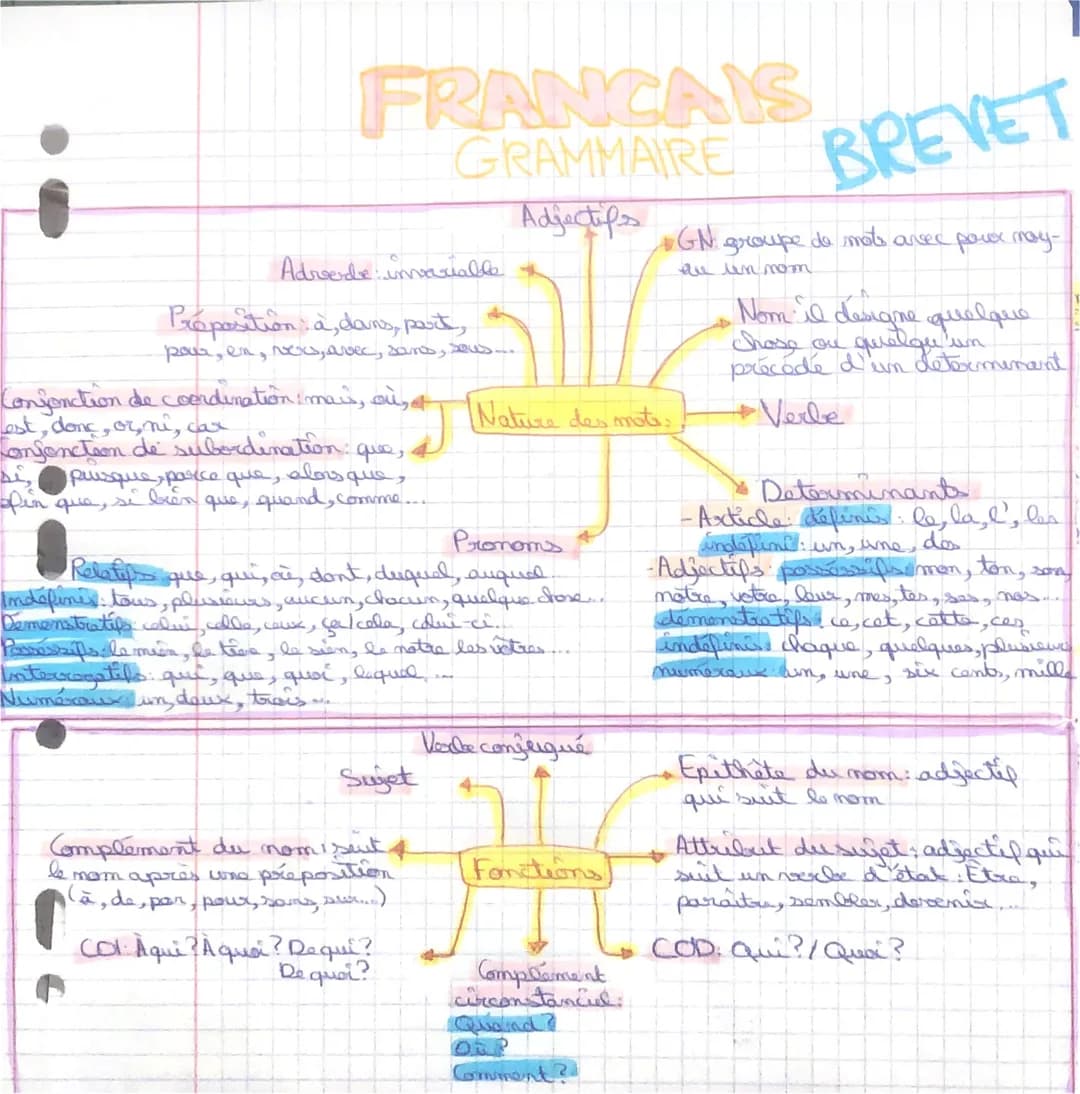 FRANCAIS
GRAMMAIRE
BREVET
Adjectifs
GN: groupe de mots avec pour noy-
au un nom
Adverbe: invariable
Préposition: à, dans, part,
pour, en, vers, avec, sans, sous...
Nom: il désigne quelque
chose ou quelqu'un
précédé d'un déterminant
Conjonction de coordination: mais, où,
est, donc, or, ni, car
Conjonction de subordination: que,
si, puisque, parce que, alors que,
afin que, si bien que, quand, comme...
Nature des mots:
Verbe
Determinants
- Article: définis: le, la, l', les
indéfini: un, une, des
- Adjectifs: possessifs: mon, ton, son,
notre, votre, leur, mes, tes, ses, nos...
démonstratifs: ce, cet, cette, ces
indéfinis: chaque, quelques, plusieurs
numéraux: un, une, six cents, mille
Pronoms
Relatifs que, qui, où, dont, duquel, auquel
indéfinis: tous, plusieurs, aucun, chacun, quelque chose...
Démonstratifs: celui, celle, ceux, ça/cela, celui-ci...
Possessifs: le mien, le tien, le sien, le notre les vôtres...
Interrogatifs: qui, que, quoi, lequel, ...
Numéraux un, deux, trois...
Verbe conjugué
Sujet
Epithète du nom: adjectif
qui suit le nom
Complément du nom: suit
le nom après une préposition
(à, de, par, pour, sans, sur...)
Fonctions
Attribut du sujet: adjectif qui
suit un verbe d'état: Être,
paraître, sembler, devenir...
COI: À qui? À quoi? De qui?
De quoi?
COD: Qui?/ Quoi?
Complément
circonstanciel:
Quand?
Où?
Comment?